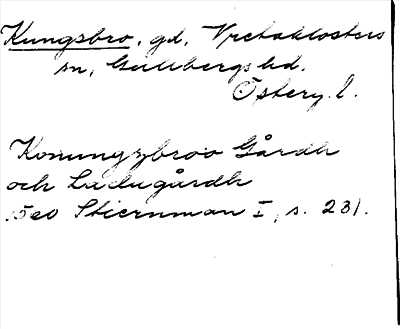 Kungsbro, gd, Vretaklosters
sn, Gullbergs hd.
Österg. l.
Konungzbroo Gårdh
och Ladugårdh
1560 Stiernman I, s. 231.